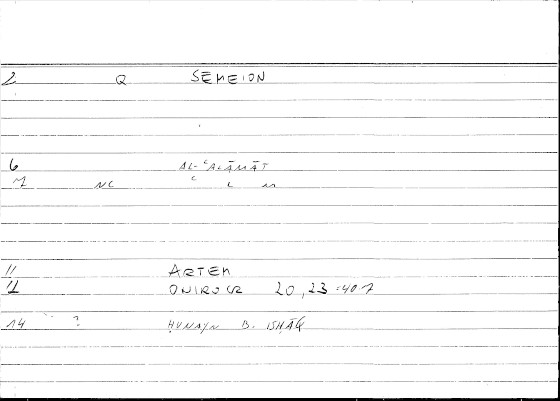 2 Q SEMEION
6 AL-ʿALĀMĀT
7 NC ʿ L M
11 ARTEM
12 ONIROCR 20,23=40 7
14 ? ḤUNAYN B. ISḤĀQ